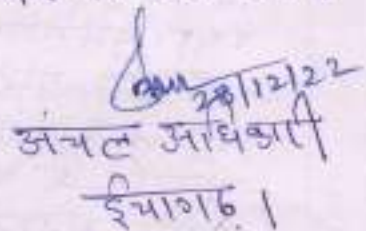 28/12/22
अंचल अधिकारी
ईचागढ़ |